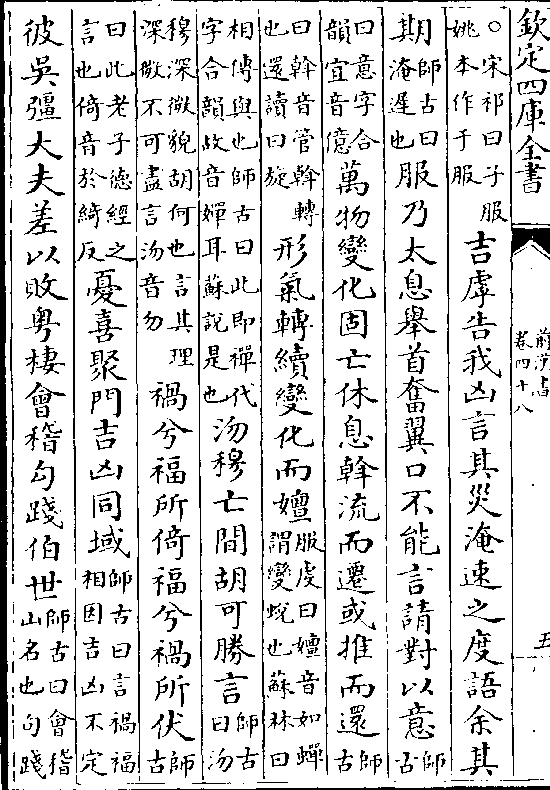 欽定四庫全書
前漢書
卷四十八
五
○宋祁曰子服姚本作于服吉虖告我凶言其災淹速之度語余其
期師古曰淹遲也服乃太息舉首奮翼口不能言請對以意師古
曰意字合韻宜音億萬物變化固亡休息斡流而遷或推而還師古
曰斡音管斡轉也還讀曰旋形氣轉續變化而嬗服虔曰嬗音如蟬謂變蛻也蘇林曰
相傳與也師古曰此即禪代字合韻故音嬋耳蘇說是也沕穆亡間胡可勝言師古曰沕
穆深微貌胡何也言其理深微不可盡言沕音勿禍兮福所倚福兮禍所伏師古
曰此老子德經之言也倚音於綺反憂喜聚門吉凶同域師古曰言禍福相因吉凶不定
彼吳彊大夫差以敗粵棲會稽句踐伯世師古曰會稽山名也句踐